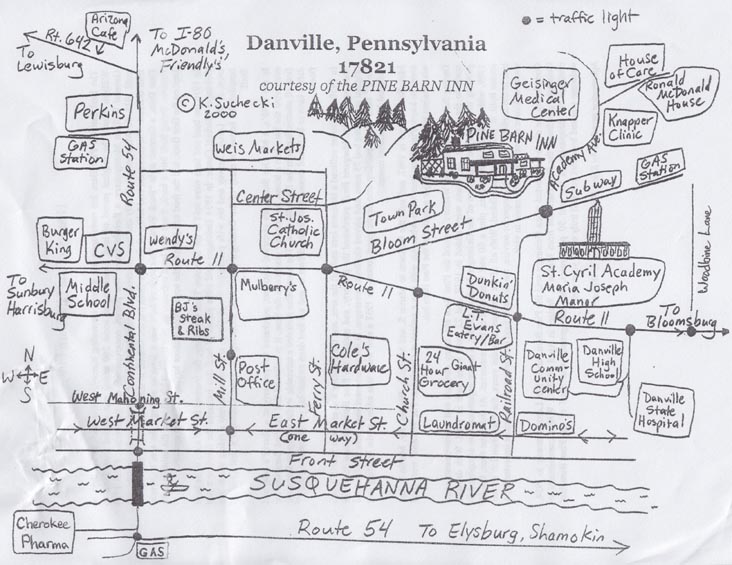 ● = traffic light
Arizona
Cafe
Rt. 642
To
Lewisburg
To I-80
McDonald's,
Friendly's
Danville, Pennsylvania
17821
courtesy of the PINE BARN INN
© K. Suchecki
2000
Geisinger
Medical
Center
House
of Care
Ronald
McDonald
House
Perkins
Knapper
Clinic
GAS
Station
Route 54
Weis Markets
PINE BARN INN
Academy Ave.
Subway
GAS
Station
Center Street
Town Park
Bloom Street
Woodbine Lane
Burger
King
CVS
Wendy's
Route 11
St. Jos.
Catholic
Church
St. Cyril Academy
Maria Joseph
Manor
To
Sunbury
Harrisburg
Middle
School
Continental Blvd.
BJ's
Steak
& Ribs
Mulberry's
Route 11
Dunkin'
Donuts
L.T.
Evans
Eatery/Bar
Route 11
To
Bloomsburg
N
W E
S
Mill St.
Post
Office
Ferry St.
Cole's
Hardware
Church St.
24
Hour Giant
Grocery
Railroad St.
Danville
Comm-
unity
Center
Danville
High
School
Danville
State
Hospital
West Mahoning St.
West Market St.
East Market St.
(one way)
Laundromat
Domino's
Front Street
SUSQUEHANNA RIVER
Cherokee
Pharma
GAS
Route 54 To Elysburg, Shamokin